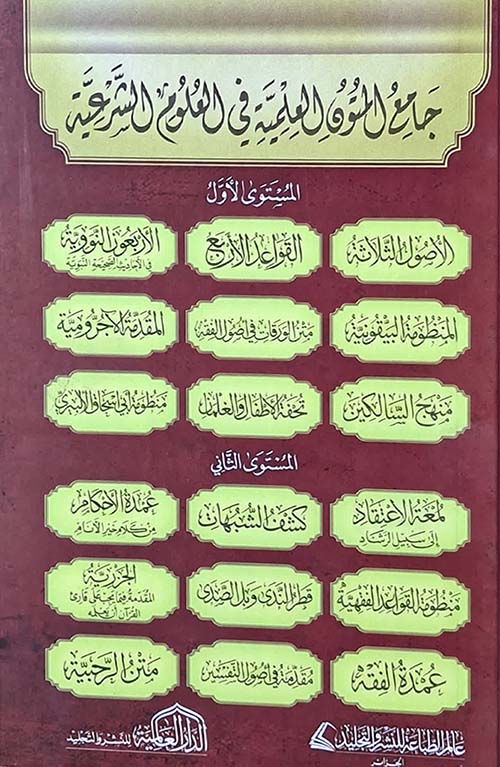 جَامِعُ المُتُونِ العِلْمِيَّةِ فِي العُلُومِ الشَّرْعِيَّةِ
المُسْتَوَى الأَوَّلُ
الأصول الثلاثة
القواعد الأربع
الأربعون النووية
في الأحاديث الصحيحة النبوية
المنظومة البيقونية
متن الورقات في أصول الفقه
المقدمة الآجرومية
منهج السالكين
تحفة الأطفال والغلمان
منظومة أبي إسحاق الإلبيري
المُسْتَوَى الثَّانِي
لمعة الاعتقاد
إلى سبيل الرشاد
كشف الشبهات
عمدة الأحكام
من كلام خير الأنام
منظومة القواعد الفقهية
قطر الندى وبل الصدى
الجزرية
المقدمة فيما يجب على قارئ
القرآن أن يعلمه
عمدة الفقه
مقدمة في أصول التفسير
متن الرحبية
عالم الطباعة للنشر والتجليد
الجزائر
الدار العالمية
للنشر والتجليد